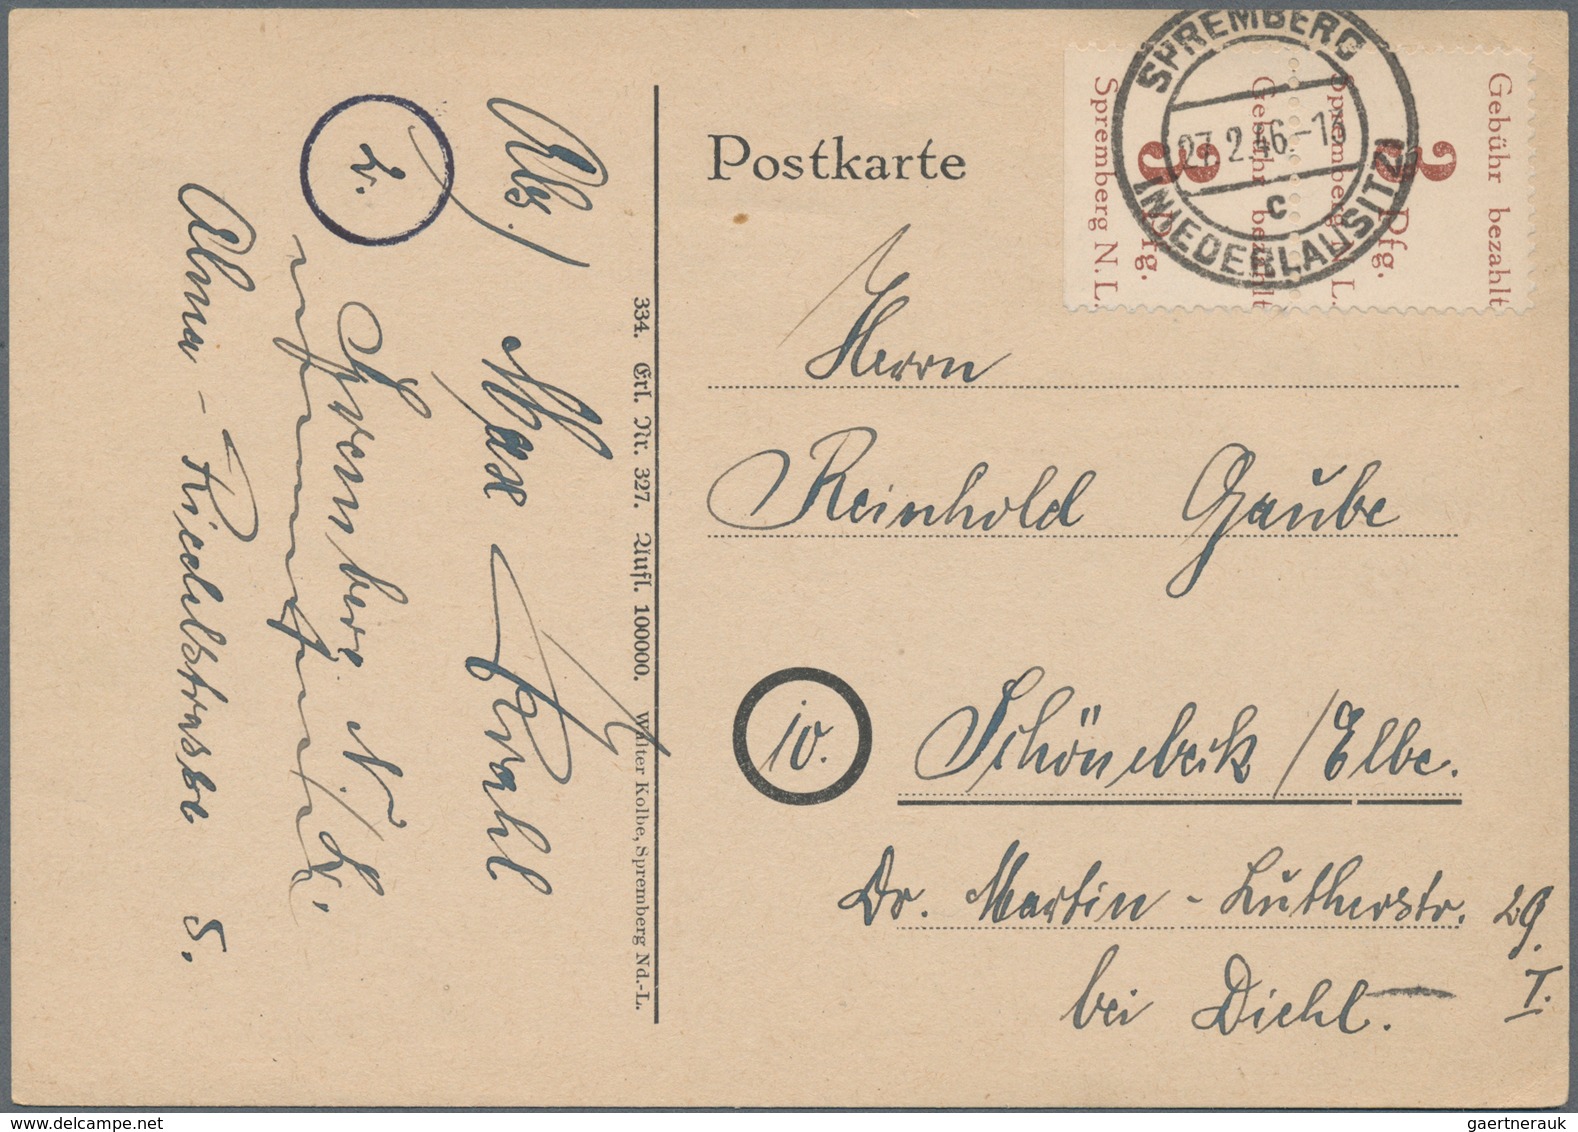 Postkarte
Gebühr bezahlt
3 Pfg.
Spremberg N. L.
Gebühr bezahlt
3 Pfg.
Spremberg N. L.
SPREMBERG
27.2.46.-18
c
(NIEDERLAUSITZ)
Herrn
Reinhold Gaube
10.
Schönebeck /Elbe.
Dr. Martin-Lutherstr. 29.
I.
bei Diehl.
334. Erl. Nr. 327. Aufl. 100000. Walter Kolbe, Spremberg Nd.-L.
Abs./
Max Krahl
2.
Spremberg N./L.
Alma-Riedelstrasse 8.
gaertnerauk